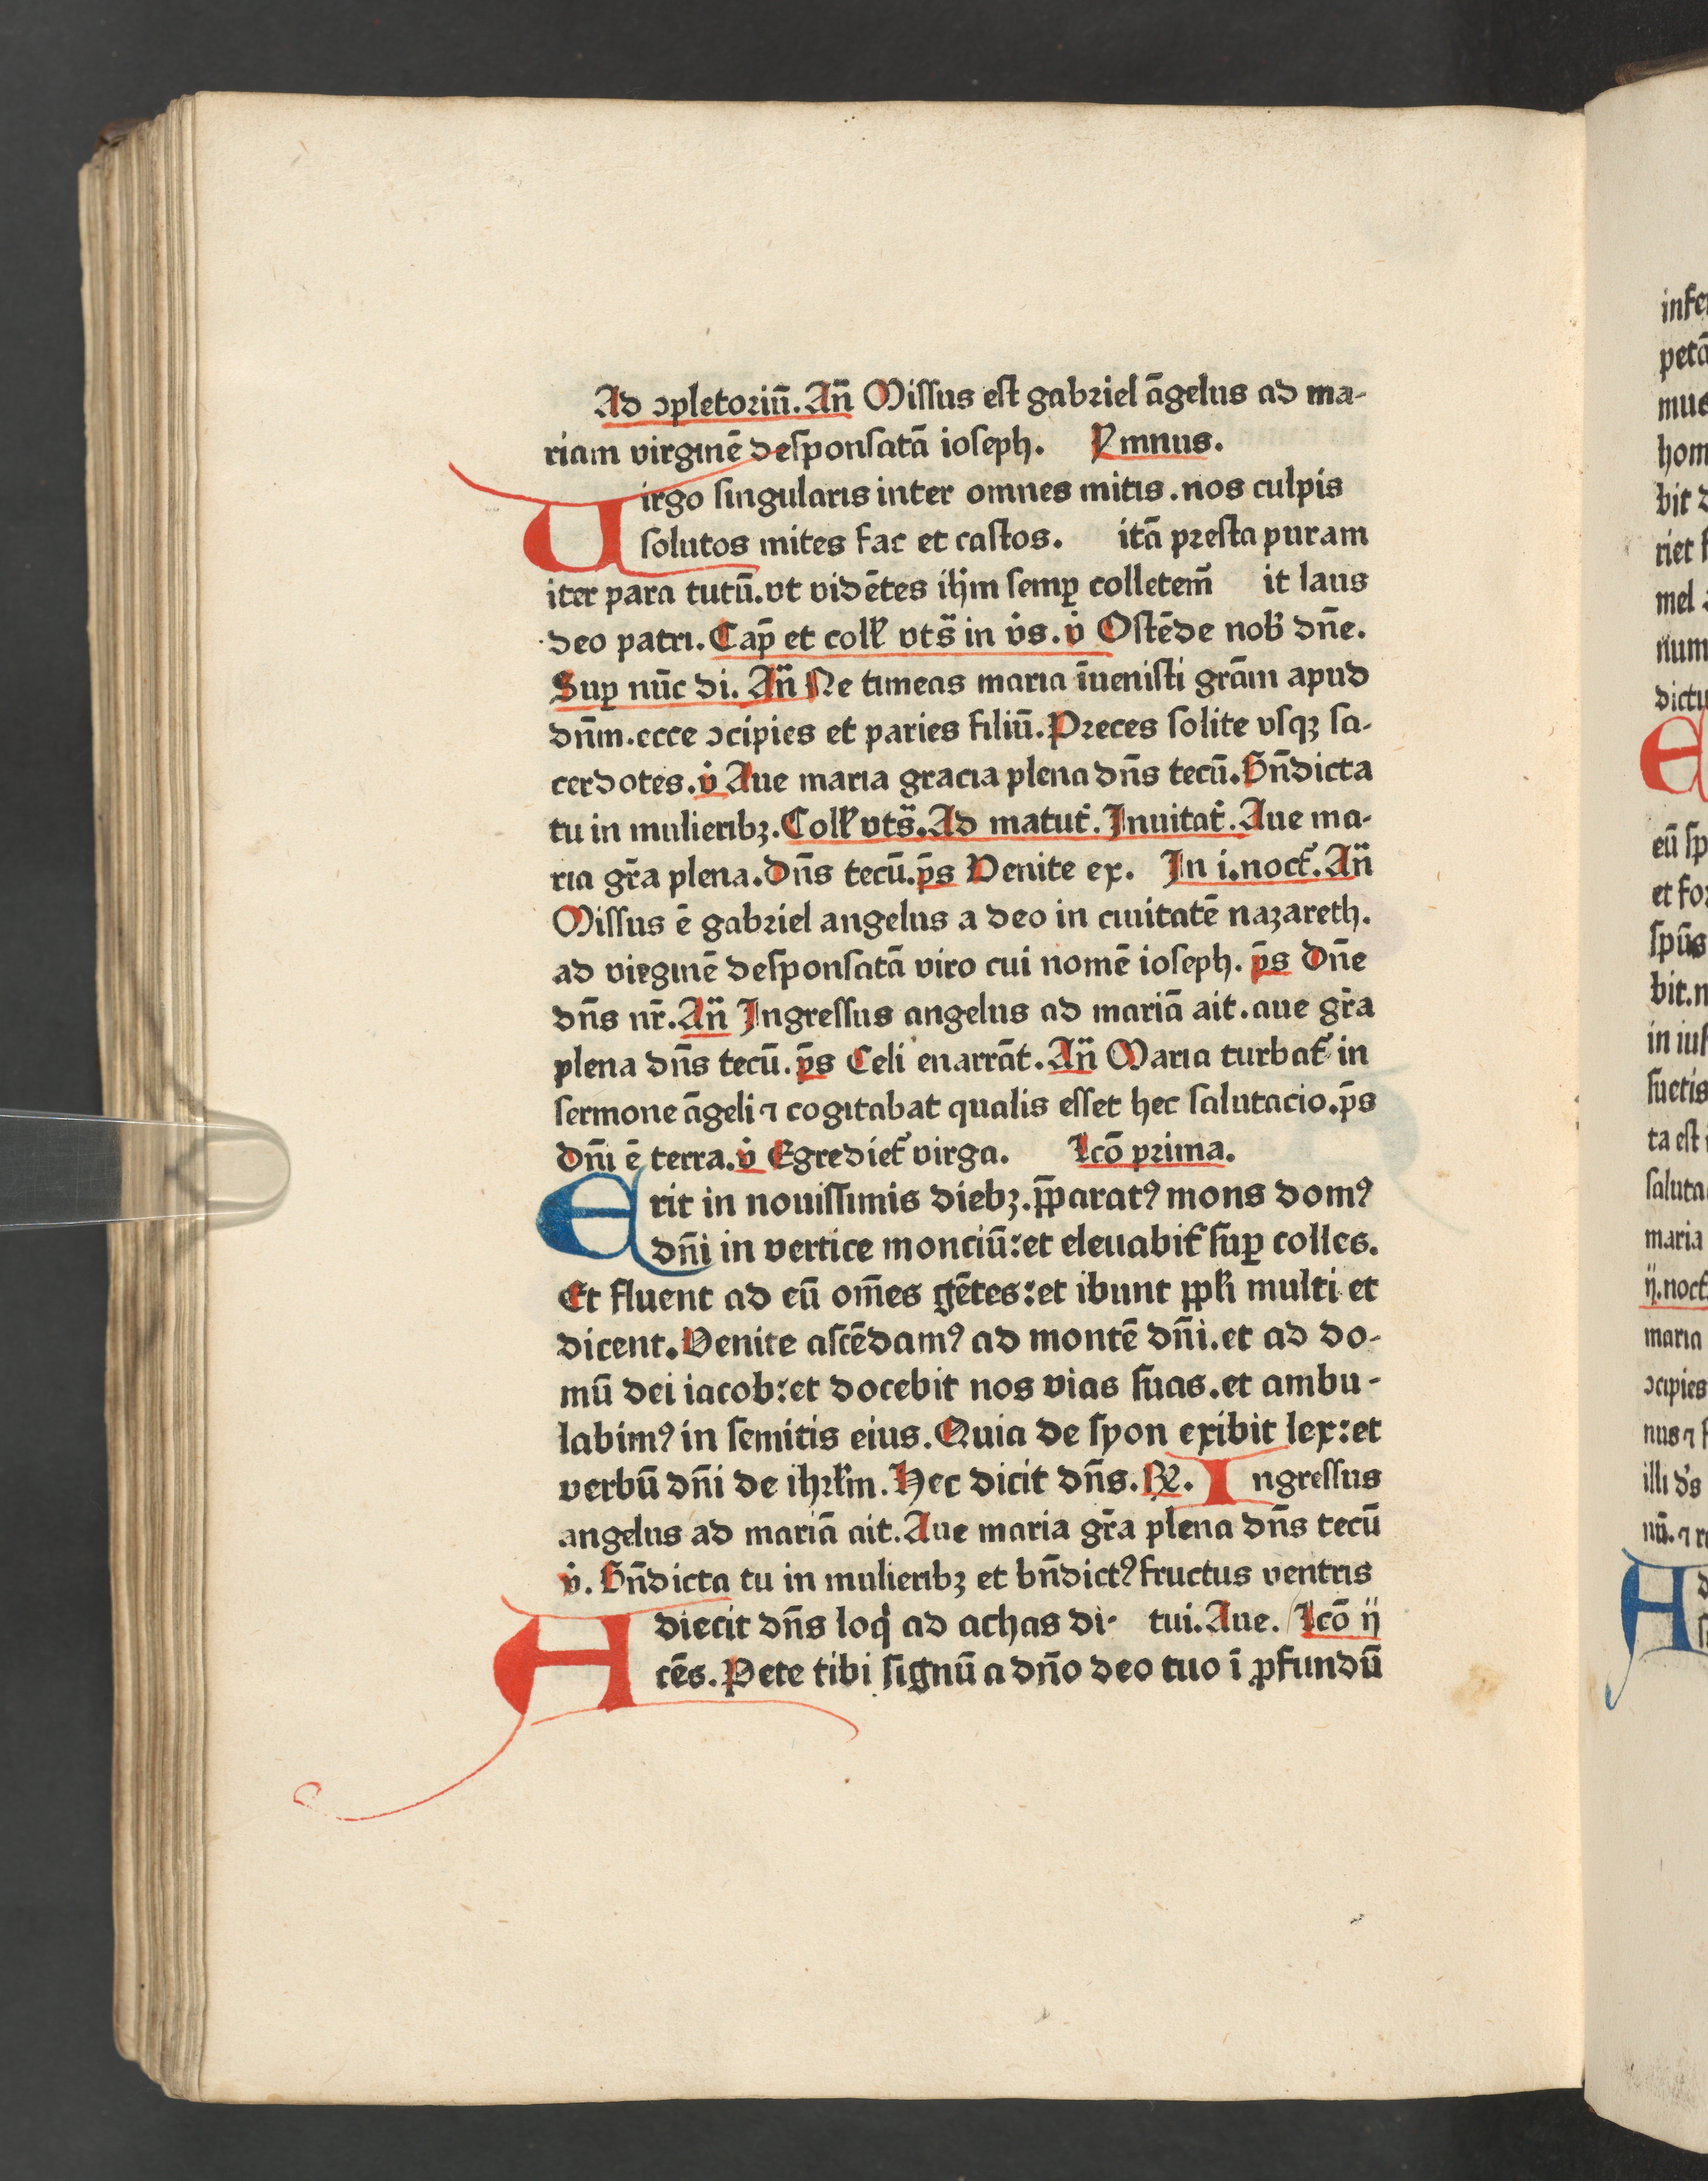 Ad ɔpletoriū. An̄ Missus est gabriel āgelus ad ma-
riam virginē desponsatā ioseph. Ymnus.
Virgo singularis inter omnes mitis. nos culpis
solutos mites fac et castos. itā presta puram
iter para tutū. vt vidētes ih̄m semꝑ colletem̄ it laus
deo patri. Cap̄ et coll' vts̄ in v̇s. v̇ Ostēde nob' dn̄e.
Suꝑ nūc di. An̄ Ne timeas maria īuenisti grām apud
dn̄m. ecce ɔcipies et paries filiū. Preces solite vsqꝫ sa-
cerdotes. v̇ Aue maria gracia plena dn̄s tecū. Bn̄dicta
tu in mulieribꝫ. Coll' vts̄. Ad matut'. Inuitat'. Aue ma-
ria gr̄a plena. Dn̄s tecū. p̄s Venite ex. In i. noct'. An̄
Missus ē gabriel angelus a deo in ciuitatē nazareth.
ad virginē desponsatā viro cui nomē ioseph. p̄s Dn̄e
dn̄s nr̄. An̄ Ingressus angelus ad mariā ait. aue gr̄a
plena dn̄s tecū. p̄s Celi enarrāt. An̄ Maria turbat' in
sermone āgeli ⁊ cogitabat qualis esset hec salutacio. p̄s
Dn̄i ē terra. v̇ Egrediet' virga. Lcō prima.
Erit in nouissimis diebꝫ. p̄paratꝰ mons domꝰ
dn̄i in vertice monciū: et eleuabit' suꝑ colles.
Et fluent ad eū om̄es gētes: et ibunt ppl'i multi et
dicent. Venite ascēdamꝰ ad montē dn̄i. et ad do-
mū dei iacob: et docebit nos vias suas. et ambu-
labimꝰ in semitis eius. Quia de syon exibit lex: et
verbū dn̄i de ihrl'm. Hec dicit dn̄s. ℟. Ingressus
angelus ad mariā ait. Aue maria gr̄a plena dn̄s tecū
v̇. Bn̄dicta tu in mulieribꝫ et bn̄dictꝰ fructus ventris
Adiecit dn̄s loq' ad achas di- tui. Aue. Lcō ij
cēs. Pete tibi signū a dn̄o deo tuo ī ꝓfundū
petā
mus
hom
bit
riet
mel
num
dictu
E
eū sp
et for
sp̄us
bit. n
in iust
suetis
ta est
saluta
maria
ij. noct'
maria
ɔcipies
nus ⁊
illi d's
nū. ⁊ r
A